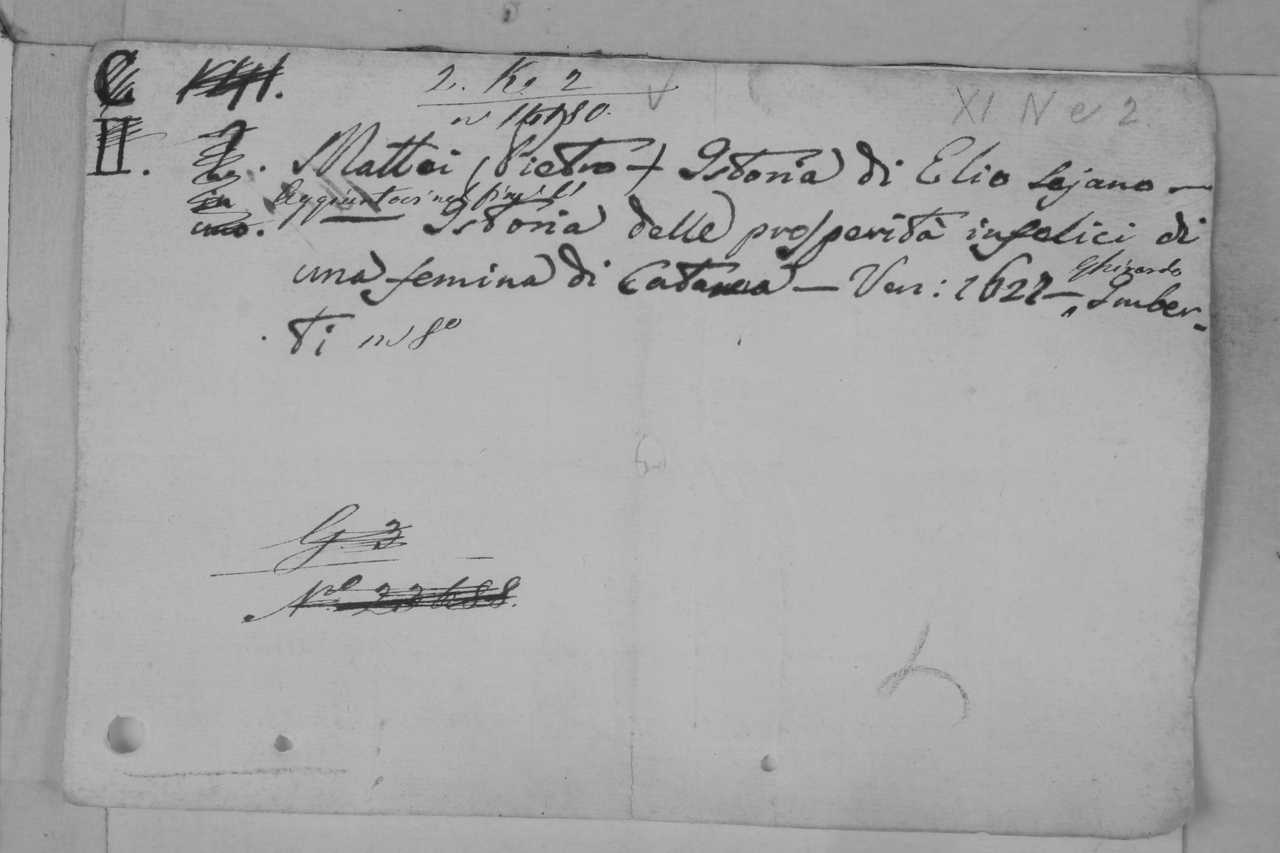 2. K. 2
XI N e 2.
II.
Mattei (Pietro) Istoria di Elio Sejano —
Aggiuntovi nel fine li
Istoria delle prosperità infelici di
una femina di Catanea — Ven: 1627 — Ghirardo Imber-
ti in 8º
G. 3
Nrº 23688.